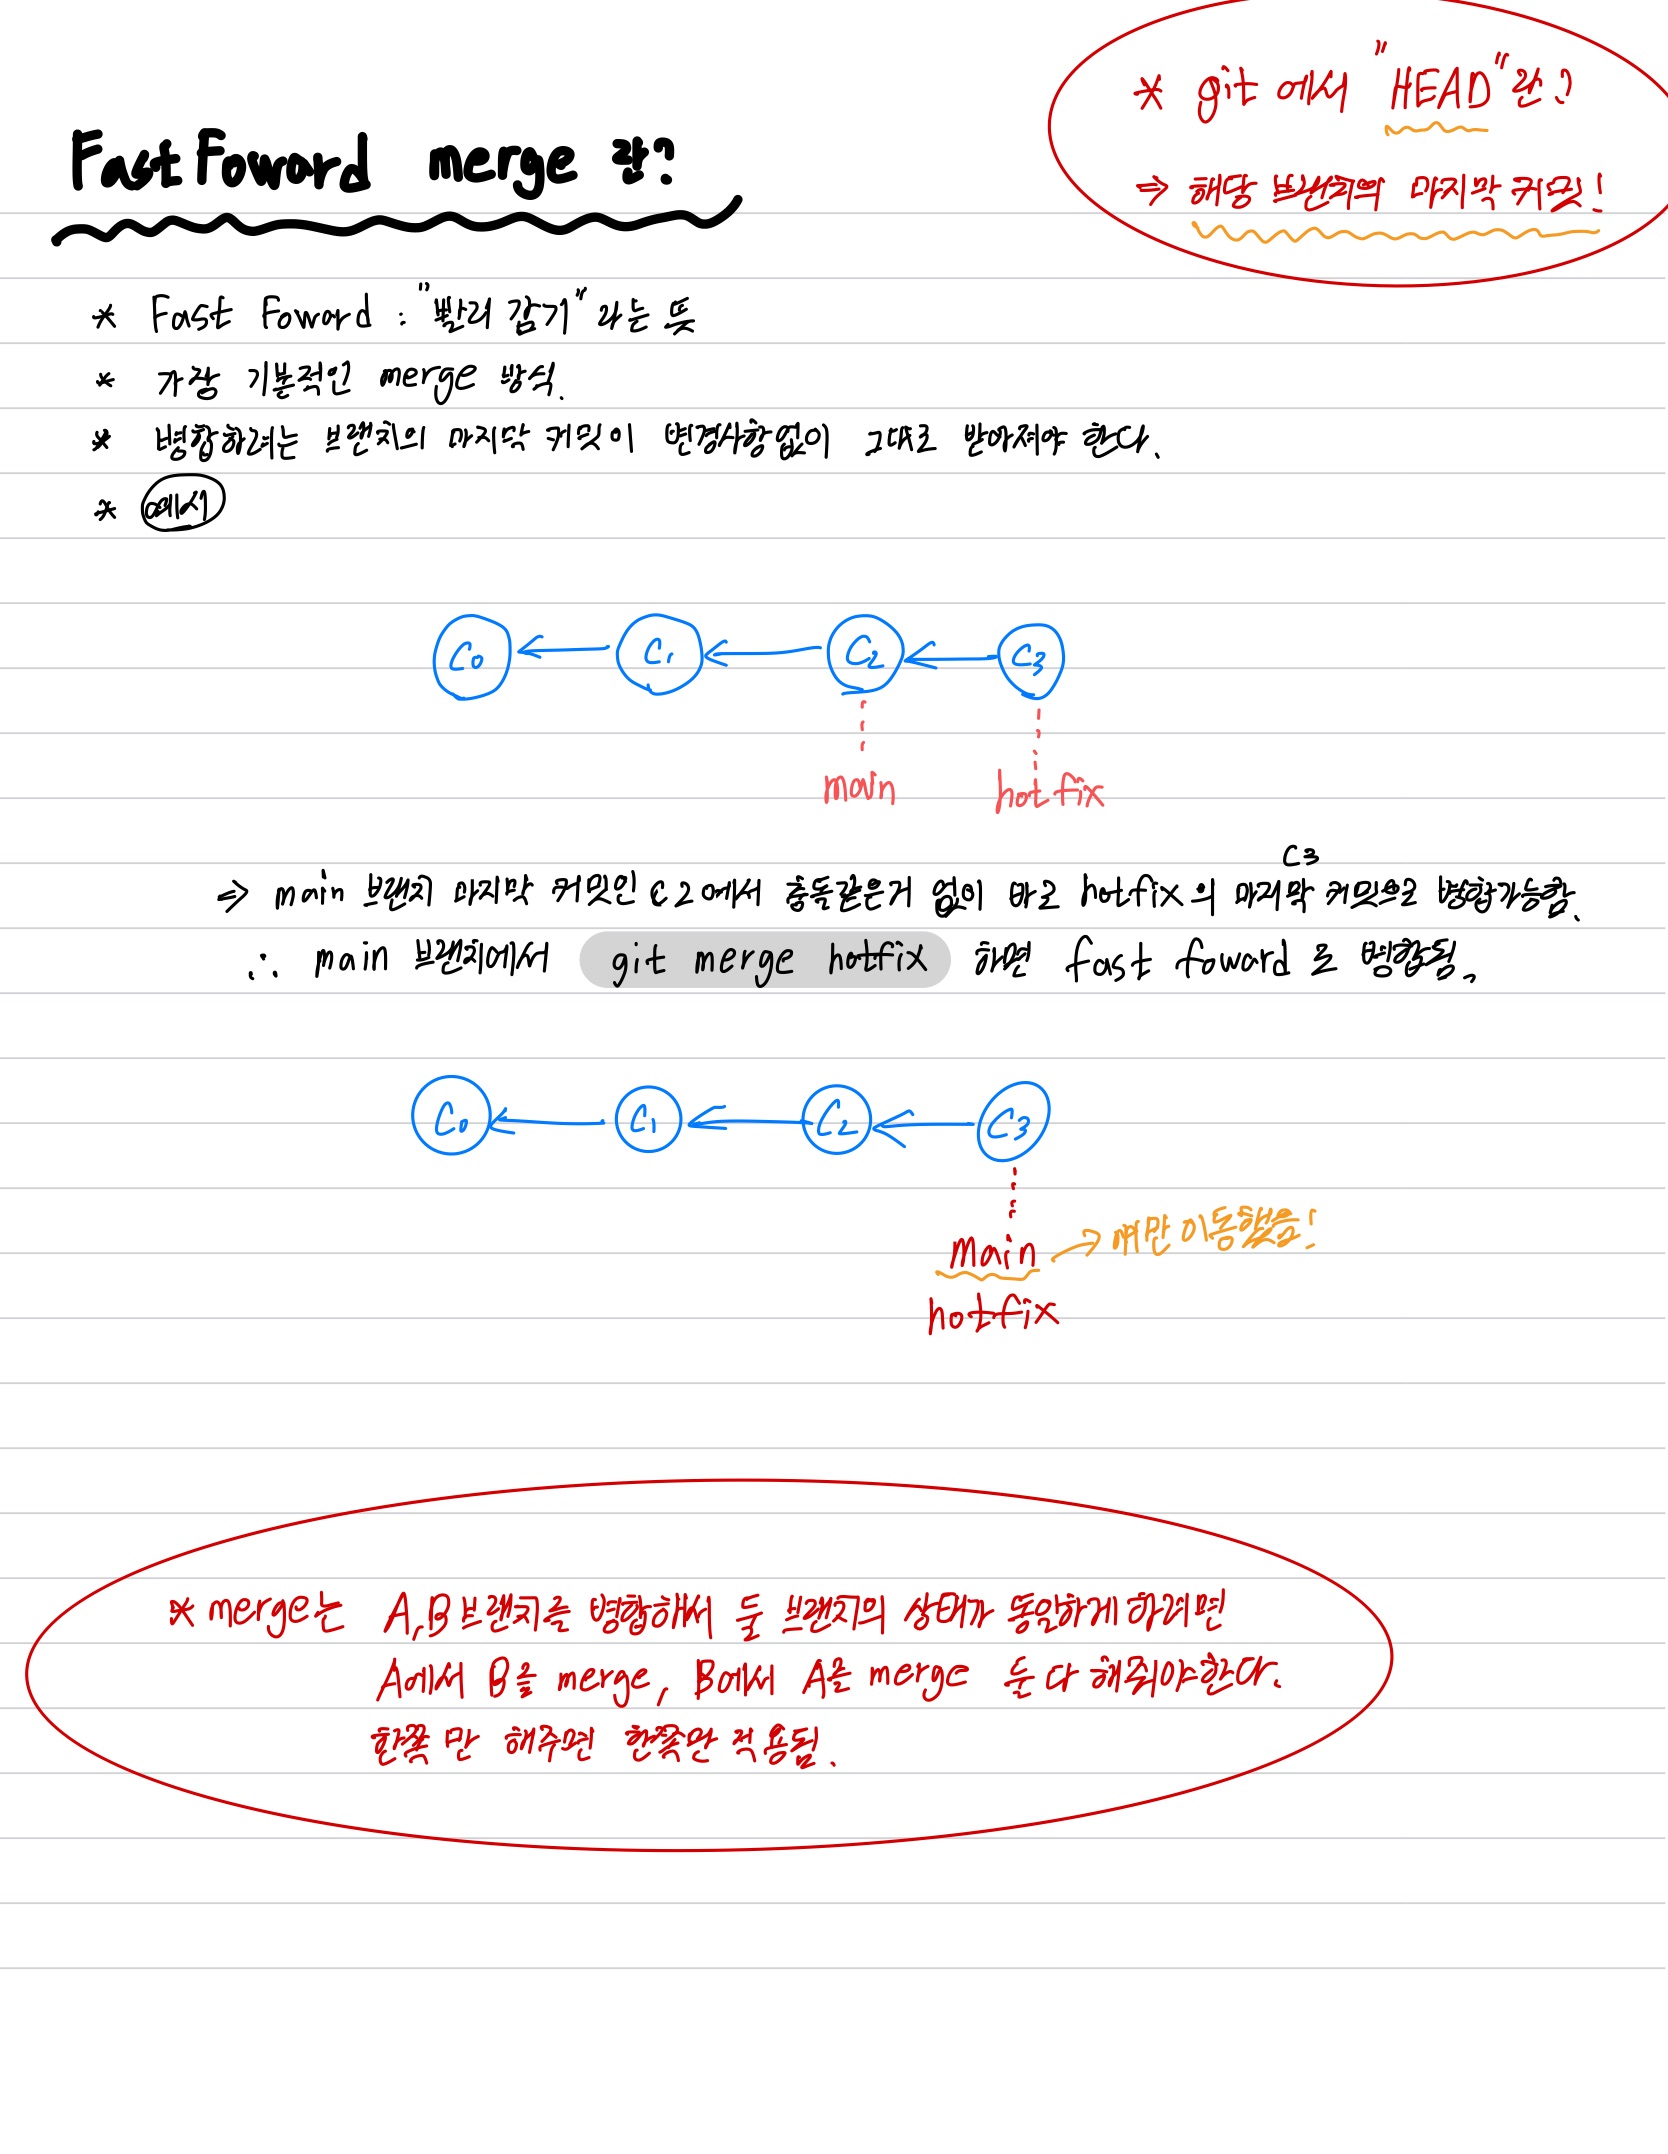 * git에서 "HEAD"란?
⇒ 해당 브랜치의 마지막 커밋!
Fast Foward merge 란?
* Fast Foward : "빨리 감기"라는 뜻
* 가장 기본적인 merge 방식.
* 병합하려는 브랜치의 마지막 커밋이 변경사항없이 그대로 받아져야 한다.
* 예시
C0 C1 C2 C3
main hotfix
C3
⇒ main 브랜치 마지막 커밋인 C2에서 충돌같은거 없이 바로 hotfix의 마지막 커밋으로 병합가능함.
∴ main 브랜치에서 git merge hotfix 하면 fast foward로 병합됨.
C0 C1 C2 C3
main → 얘만 이동했음!
hotfix
* merge는 A,B브랜치를 병합해서 둘 브랜치의 상태가 동일하게 하려면
A에서 B를 merge, B에서 A를 merge 둘 다 해줘야한다.
한쪽만 해주면 한쪽만 적용됨.